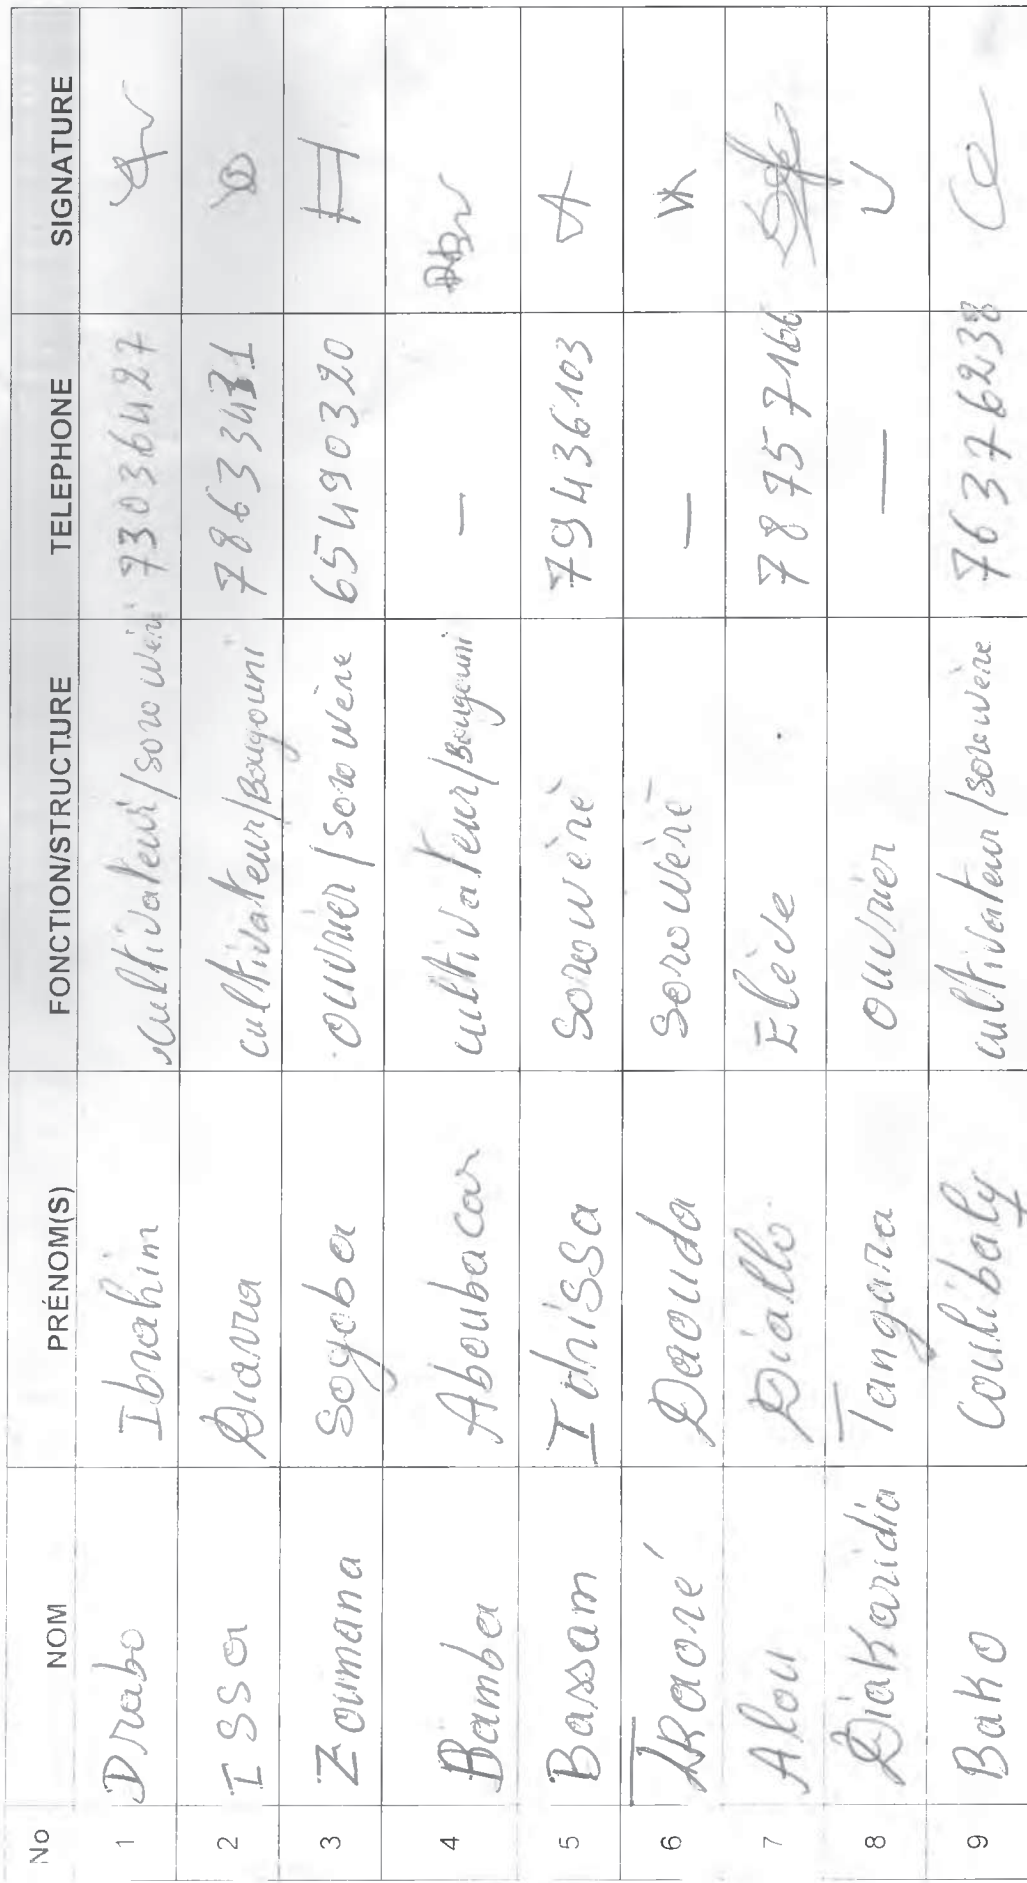 No NOM PRÉNOM(S) FONCTION/STRUCTURE TELEPHONE SIGNATURE
1 Drabo Ibrahim cultivateur/sorowèné 73036427
2 Issa Diarra cultivateur/Bougouni
3 Zoumana Sogoba ouvrier/sorowène 65490320
4 Bamba Aboubacar cultivateur/Bougouni —
5 Bassam Idrissa Sorowèné 79436103
6 TRaoré Daouda Sorowèné —
7 Alou Diallo Elève 78757166
8 Diakaridia Tangara ouvrier —
9 Bako Coulibaly cultivateur/sorowène 76376238